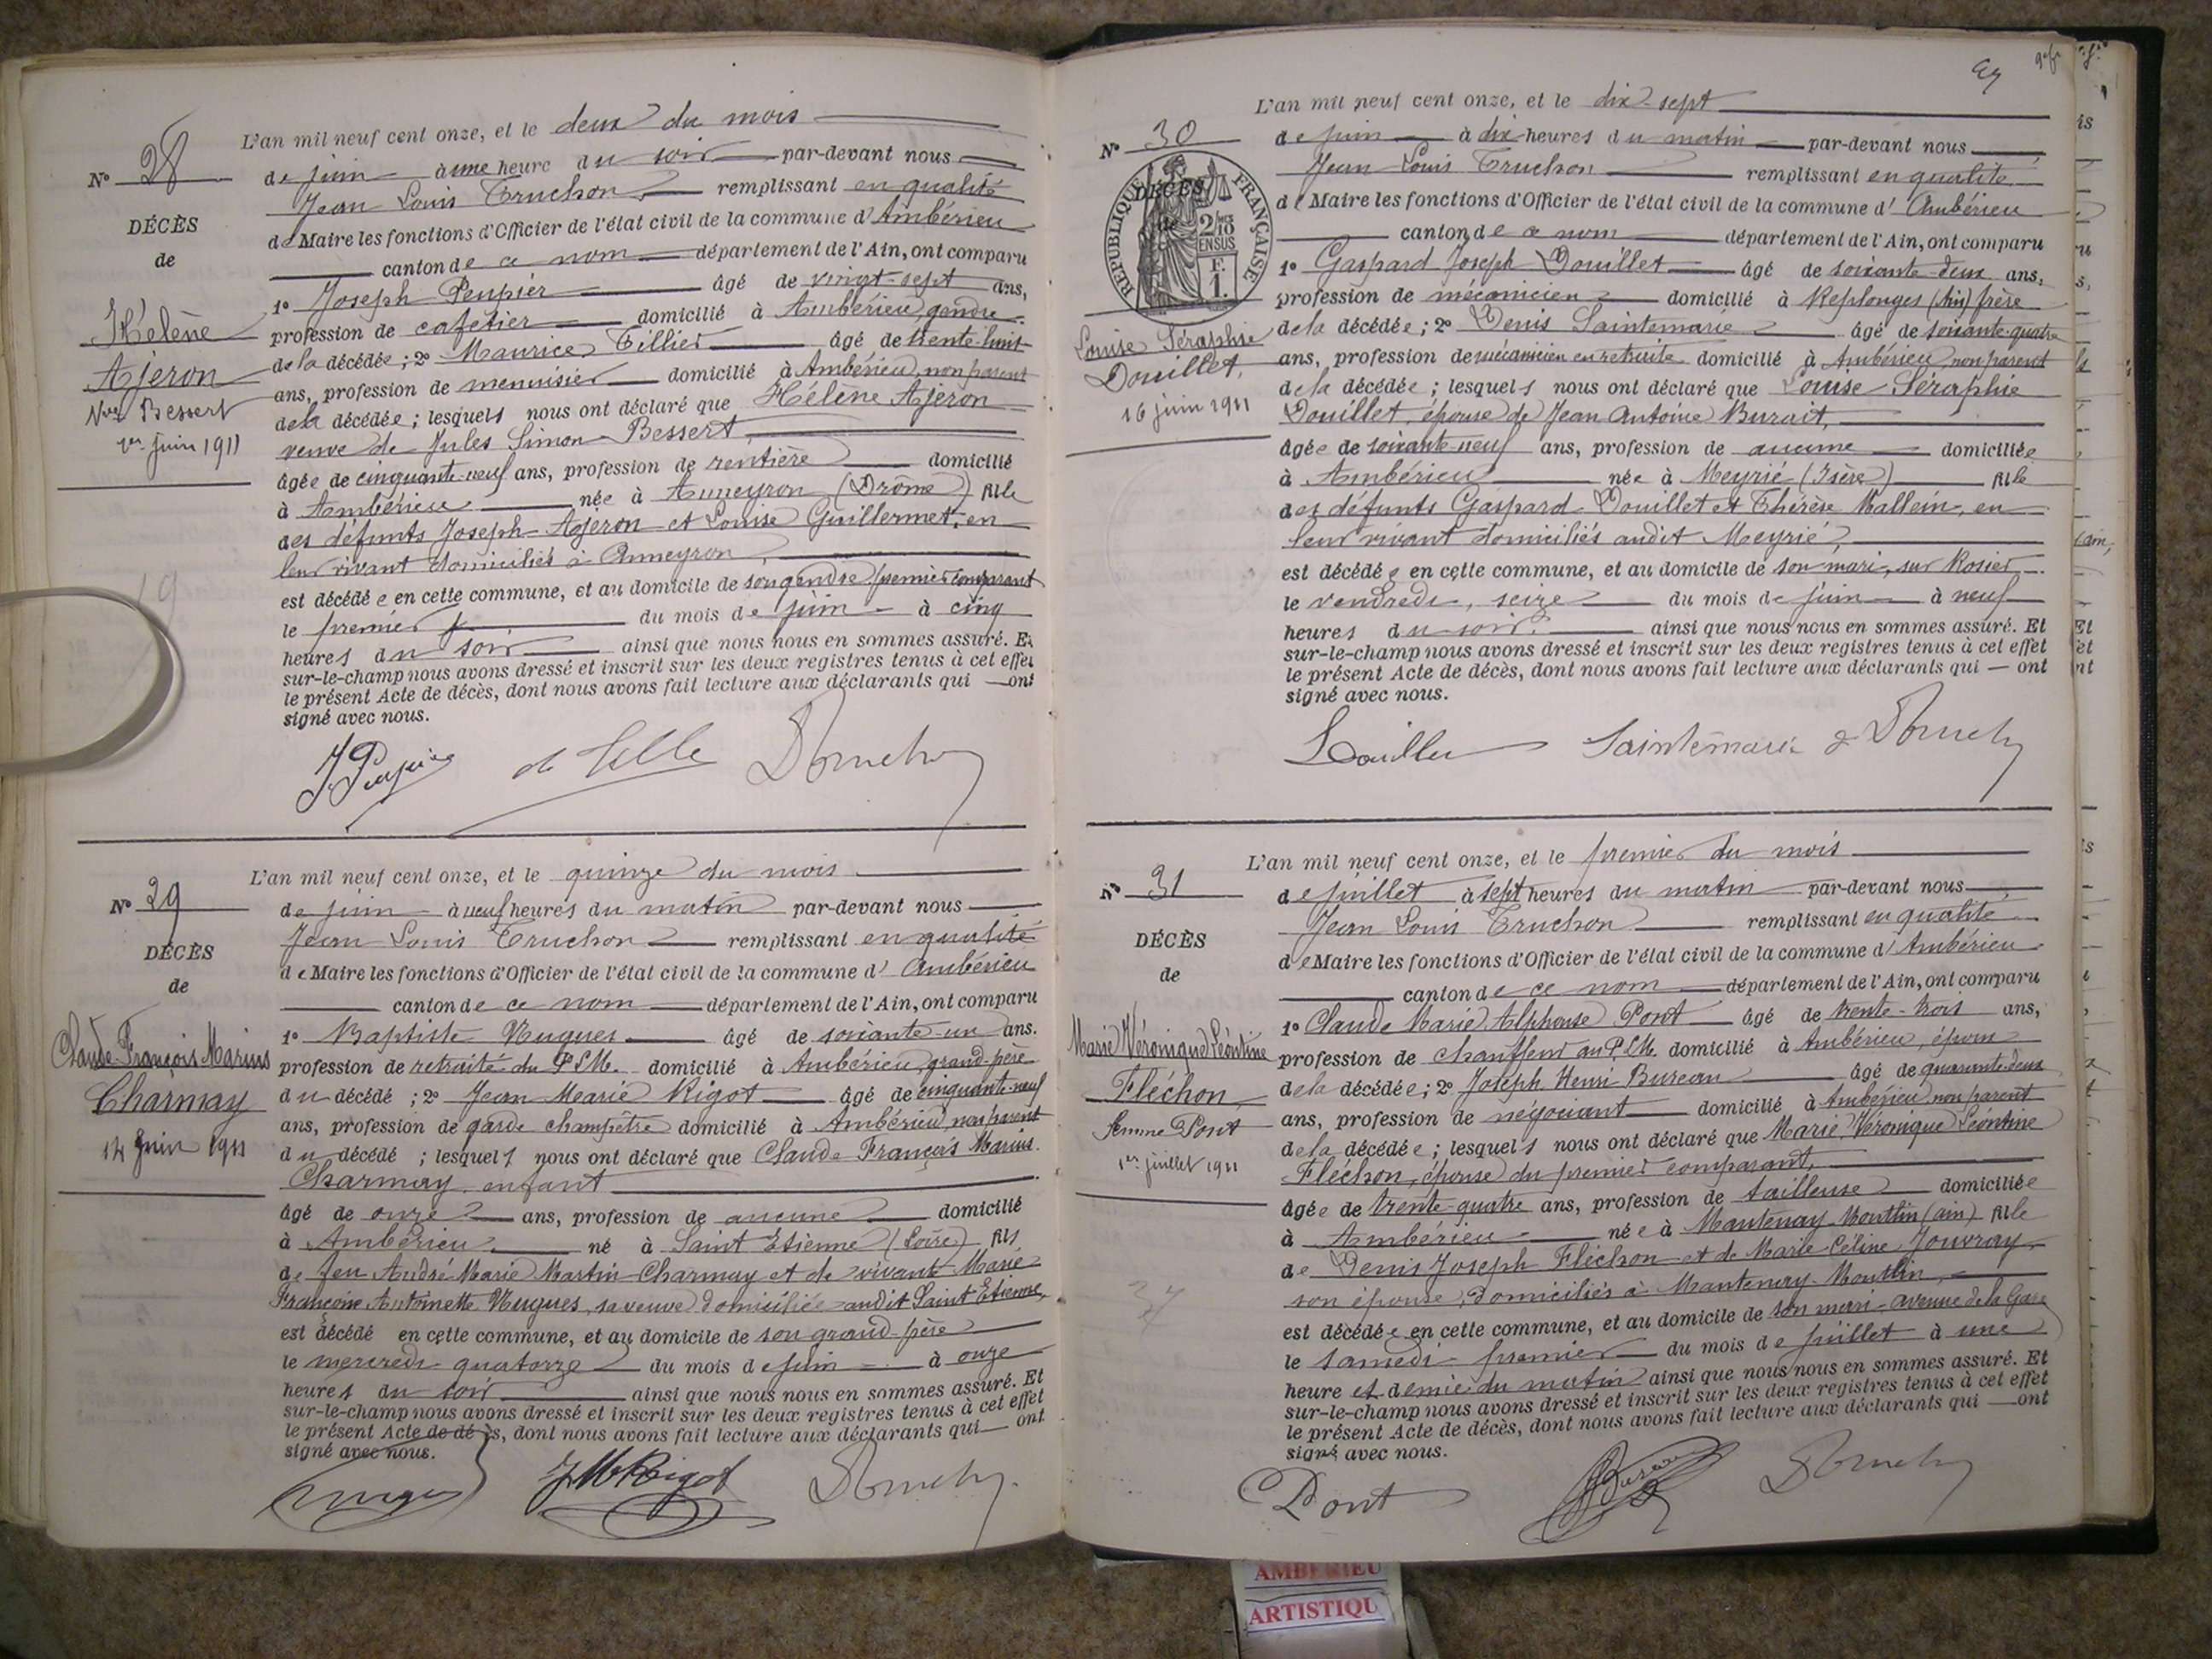 L'an mil neuf cent onze, et le deux du mois
N° 28
de juin à une heure du soir par-devant nous
Jean Louis Truchon remplissant en qualité
DÉCÈS
de Maire les fonctions d'Officier de l'état civil de la commune d' Ambérieu
de
canton de ce nom département de l'Ain, ont comparu
1° Joseph Peupier âgé de vingt-sept ans,
Hélène
profession de cafetier domicilié à Ambérieu, gendre
Ajeron
de la décédée ; 2° Maurice Tillier âgé de trente-huit
ans, profession de menuisier domicilié à Ambérieu, non parent
Vve Bessert
de la décédée ; lesquels nous ont déclaré que Hélène Ajeron
1er juin 1911
veuve de Jules Simon Bessert,
âgée de cinquante-neuf ans, profession de rentière domicilié
à Ambérieu née à Anneyron (Drôme) fille
des défunts Joseph Ajeron et Louise Guillermet, en
leur vivant domiciliés à Anneyron,
est décédé e en cette commune, et au domicile de son gendre, premier comparant
le premier du mois de juin à cinq
heures du soir ainsi que nous nous en sommes assuré. Et
sur-le-champ nous avons dressé et inscrit sur les deux registres tenus à cet effet
le présent Acte de décès, dont nous avons fait lecture aux déclarants qui — ont
signé avec nous.
L'an mil neuf cent onze, et le quinze du mois
N° 29
de juin à neuf heures du matin par-devant nous
Jean Louis Truchon remplissant en qualité
DÉCÈS
de Maire les fonctions d'Officier de l'état civil de la commune d' Ambérieu
de
canton de ce nom département de l'Ain, ont comparu
1° Baptiste Hugues âgé de soixante-un ans.
Claude François Marius
profession de retraité du P.L.M. domicilié à Ambérieu, grand-père
Charmay
du décédé ; 2° Jean Marie Rigot âgé de cinquante-neuf
ans, profession de garde champêtre domicilié à Ambérieu, non parent
14 Juin 1911
du décédé ; lesquels nous ont déclaré que Claude François Marius
Charmay, enfant
âgé de onze ans, profession de aucune domicilié
à Ambérieu né à Saint Etienne (Loire) fils
de feu André Marie Martin Charmay et de vivante Marie
Françoise Antoinette Hugues, sa veuve, domiciliée audit Saint Etienne,
est décédé en cette commune, et au domicile de son grand-père
le mercredi quatorze du mois de juin à onze
heures du soir ainsi que nous nous en sommes assuré. Et
sur-le-champ nous avons dressé et inscrit sur les deux registres tenus à cet effet
le présent Acte de décès, dont nous avons fait lecture aux déclarants qui — ont
signé avec nous.
JM Rigot
L'an mil neuf cent onze, et le dix-sept
N° 30
de juin à dix heures du matin par-devant nous
Jean Louis Truchon remplissant en qualité
DÉCÈS
RÉPUBLIQUE FRANÇAISE
2/10 EN SUS
F. 1.
de Maire les fonctions d'Officier de l'état civil de la commune d' Ambérieu
canton de ce nom département de l'Ain, ont comparu
1° Gaspard Joseph Douillet âgé de soixante-deux ans,
profession de mécanicien domicilié à Replonges (Ain) frère
Louise Séraphie
de la décédée ; 2° Denis Saintemarie âgé de soixante-quatre
Douillet,
ans, profession de mécanicien en retraite domicilié à Ambérieu, non parent
de la décédée ; lesquels nous ont déclaré que Louise Séraphie
16 juin 1911
Douillet, épouse de Jean Antoine Burait,
âgée de soixante-neuf ans, profession de aucune domiciliée
à Ambérieu née à Meyrié (Isère) fille
des défunts Gaspard Douillet et Thérèse Mallein, en
leur vivant domiciliés audit Meyrié,
est décédé e en cette commune, et au domicile de son mari, sur Rosier
le vendredi, seize du mois de juin à neuf
heures du soir, ainsi que nous nous en sommes assuré. Et
sur-le-champ nous avons dressé et inscrit sur les deux registres tenus à cet effet
le présent Acte de décès, dont nous avons fait lecture aux déclarants qui — ont
signé avec nous.
Saintemarie
L'an mil neuf cent onze, et le premier du mois
N° 31
de juillet à sept heures du matin par-devant nous
Jean Louis Truchon remplissant en qualité
DÉCÈS
de Maire les fonctions d'Officier de l'état civil de la commune d' Ambérieu
de
canton de ce nom département de l'Ain, ont comparu
1° Claude Marie Alphonse Pont âgé de trente-trois ans,
Marie Véronique Léontine
profession de chauffeur au P.L.M. domicilié à Ambérieu, époux
Fléchon,
de la décédée ; 2° Joseph Henri Bureau âgé de quarante-deux
ans, profession de négociant domicilié à Ambérieu non parent
femme Pont
de la décédée ; lesquels nous ont déclaré que Marie Véronique Léontine
1er juillet 1911
Fléchon, épouse du premier comparant,
âgée de trente-quatre ans, profession de tailleuse domiciliée
à Ambérieu née à Mantenay-Montlin (Ain) fille
de Denis Joseph Fléchon et de Marie Céline Jouvray,
son épouse, domiciliés à Mantenay-Montlin,
est décédé e en cette commune, et au domicile de son mari, avenue de la Gare
le samedi premier du mois de juillet à une
heure et demie du matin ainsi que nous nous en sommes assuré. Et
sur-le-champ nous avons dressé et inscrit sur les deux registres tenus à cet effet
le présent Acte de décès, dont nous avons fait lecture aux déclarants qui — ont
signé avec nous.
Pont
AMBERIEU
ARTISTIQU